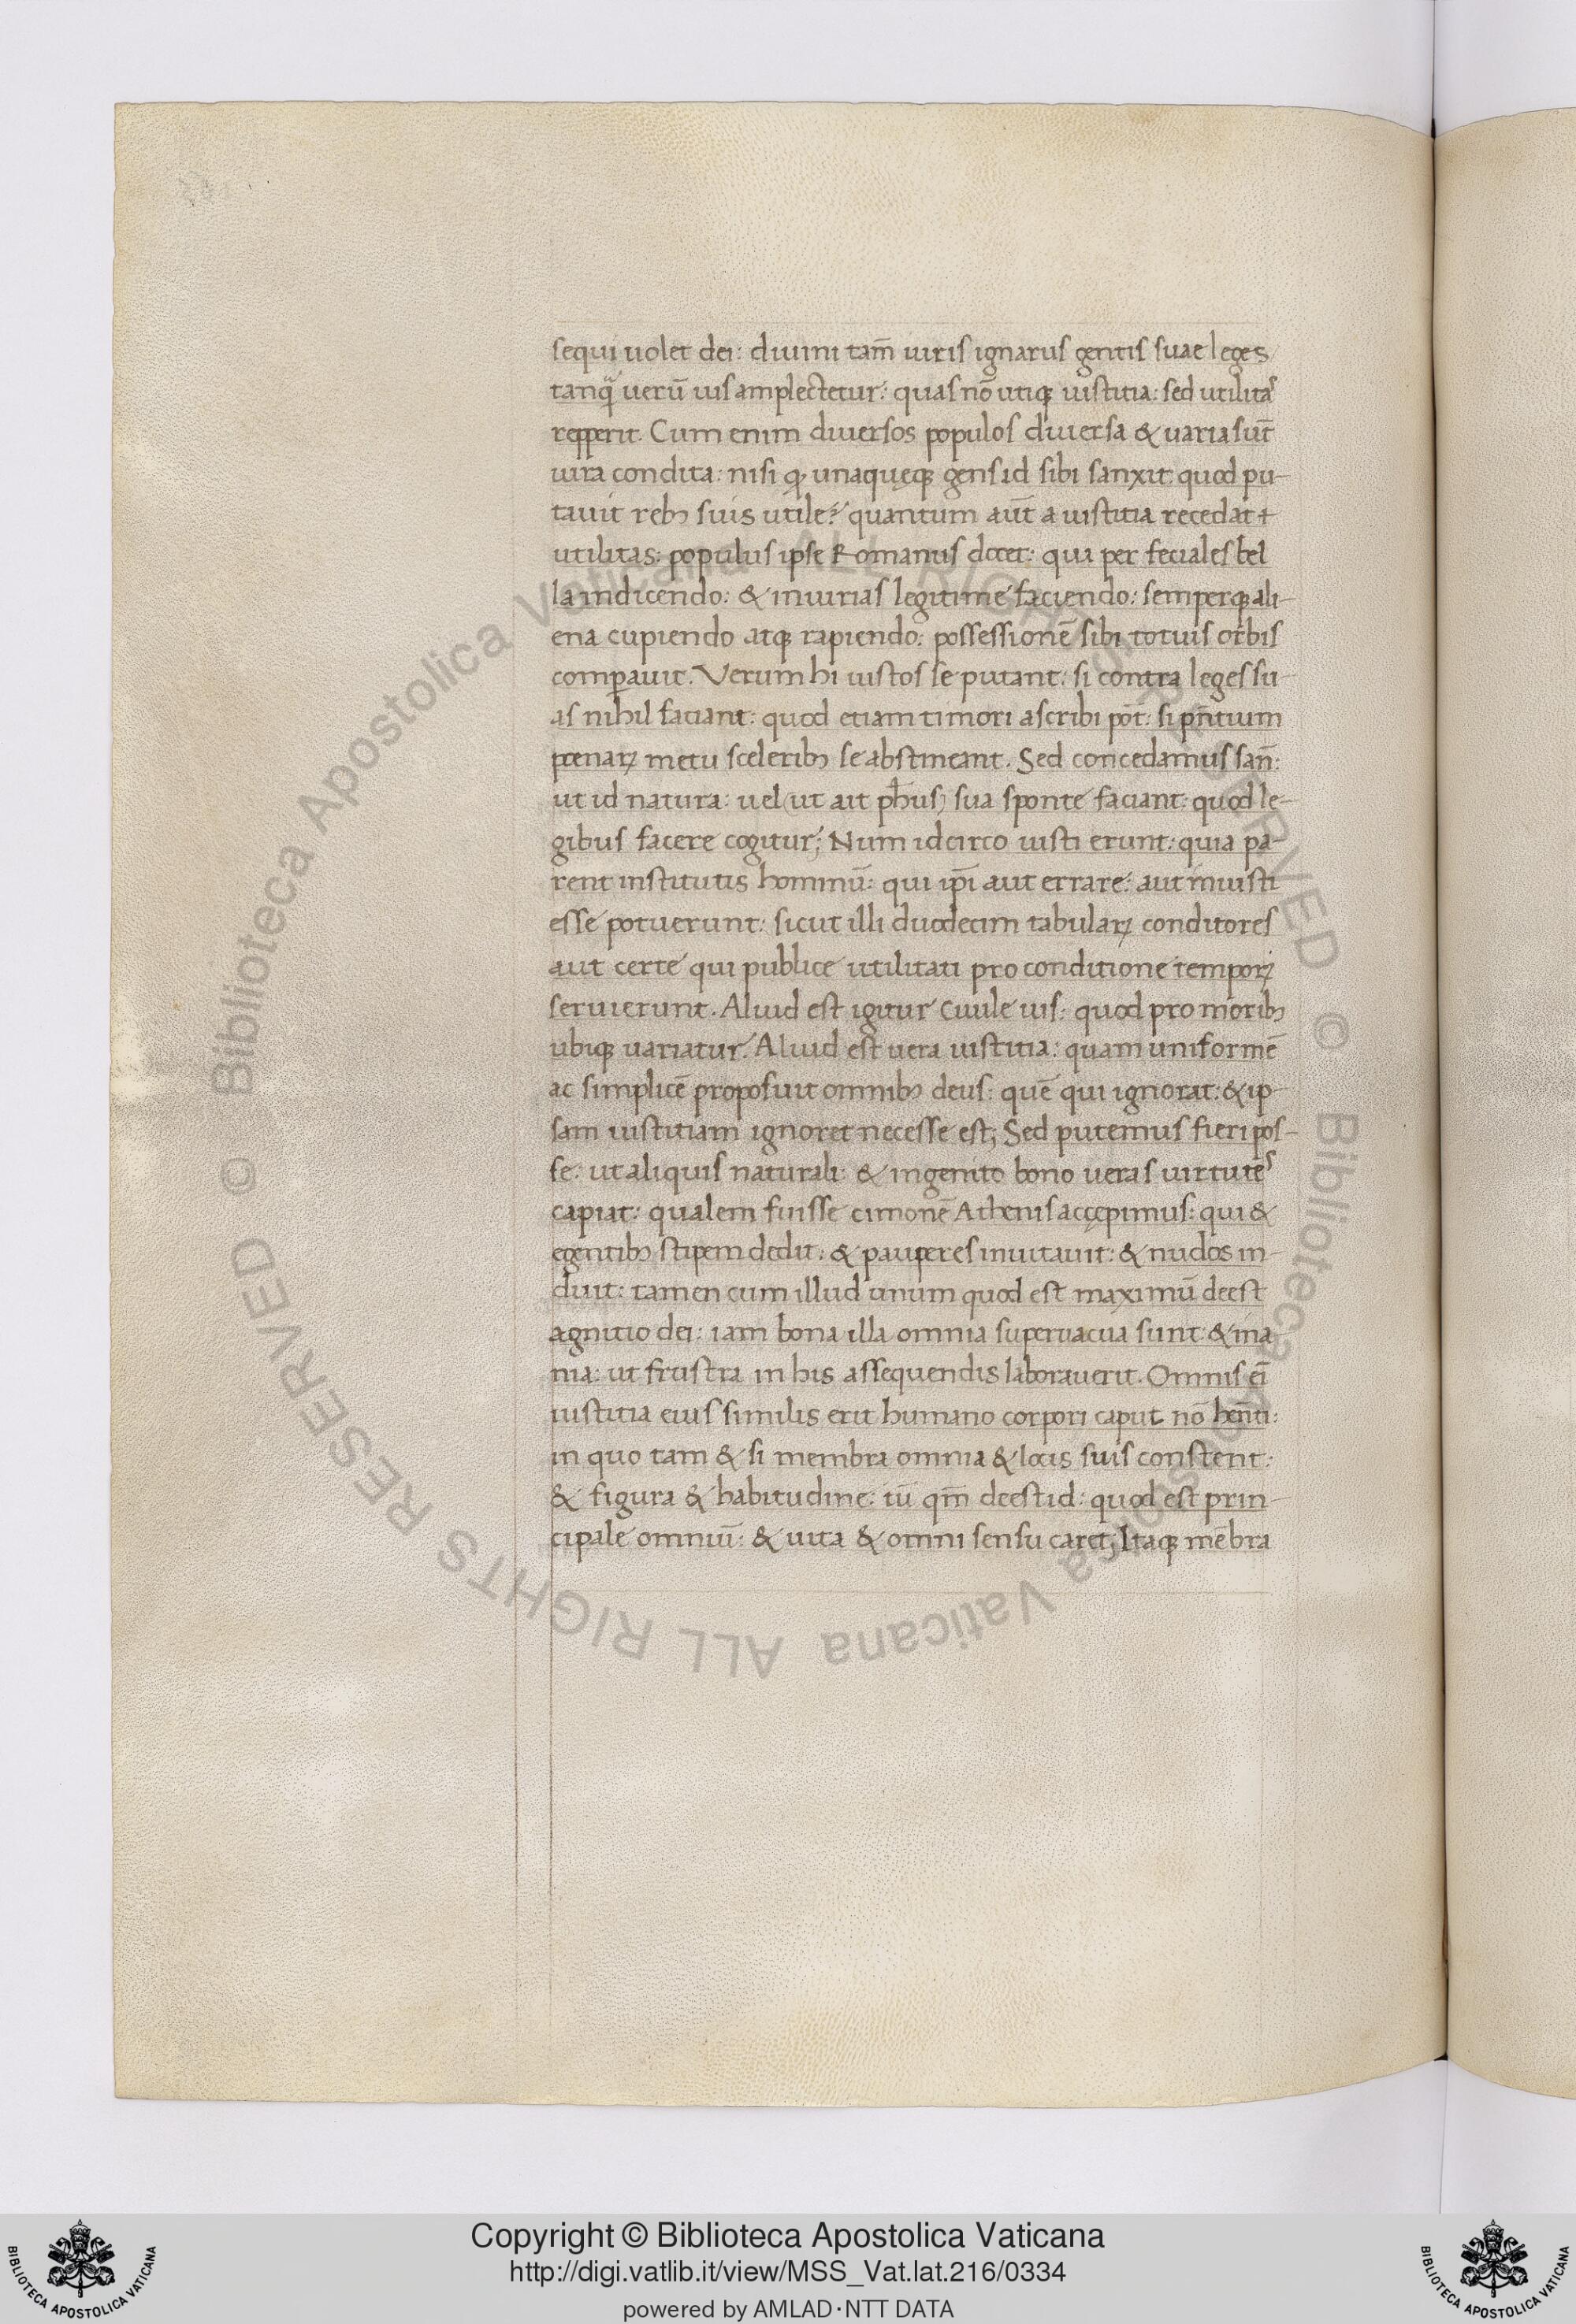 sequi uolet dei: diuini tam̅ iuris ignarus gentis suae leges
tanq̃ uerū ius amplectetur: quas nō utiq; iustitia: sed utilitas
repperit. Cum enim diuersos populos diuersa & uaria sūt
iura condita: nisi q unaquęq; gens id sibi sanxit: quod pu-
tauit reb; suis utile: quantum aūt a iustitia recedat
utilitas: populus ipse Romanus docet: qui per feciales bel
la indicendo: & iniurias legitime faciendo: semperq; ali-
ena cupiendo atq; rapiendo: possessionē sibi totius orbis
comparauit. Verum hi iustos se putant: si contra leges su-
as nihil faciant: quod etiam timori ascribi pōt: si pn̄tium
poenaꝝ metu scelerib; se abstineant. Sed concedamus san̄:
ut id natura: uel (ut ait ph̄us) sua sponte faciant: quod le-
gibus facere cogitur; Num idcirco iusti erunt: quia pa-
rent institutis hominū: qui ip̄i aut errare: aut iniusti
esse potuerunt: sicut illi duodecim tabulaꝝ conditores
aut certe qui publice utilitati pro conditione tempoꝝ
seruierunt. Aliud est igitur Ciuile ius: quod pro morib;
ubiq; uariatur. Aliud est uera iustitia: quam uniformē
ac simplicē proposuit omnib; deus: quē qui ignorat: & ip-
sam iustitiam ignoret necesse est; Sed putemus fieri pos-
se: ut aliquis naturali & ingenito bono ueras uirtutes
capiat: qualem fuisse cimonē Athenis accępimus: qui &
egentib; stipem dedit: & pauperes inuitauit: & nudos in-
duit: tamen cum illud unum quod est maximū deest
agnitio dei: iam bona illa omnia superuacua sunt & ina
nia: ut frustra in his assequendis laborauerit. Omnis eī
iustitia eius similis erit humano corpori caput nō hēnti:
in quo tam & si membra omnia & locis suis constent:
& figura & habitudine: tū qm̄ deest id: quod est prin-
cipale omniū: & uita & omni sensu caret; Itaq; mēbra
© Biblioteca Apostolica Vaticana ALL RIGHTS RESERVED © Biblioteca Apostolica Vaticana ALL RIGHTS RESERVED
Copyright © Biblioteca Apostolica Vaticana
http://digi.vatlib.it/view/MSS_Vat.lat.216/0334
powered by AMLAD·NTT DATA
BIBLIOTECA APOSTOLICA VATICANA
BIBLIOTECA APOSTOLICA VATICANA